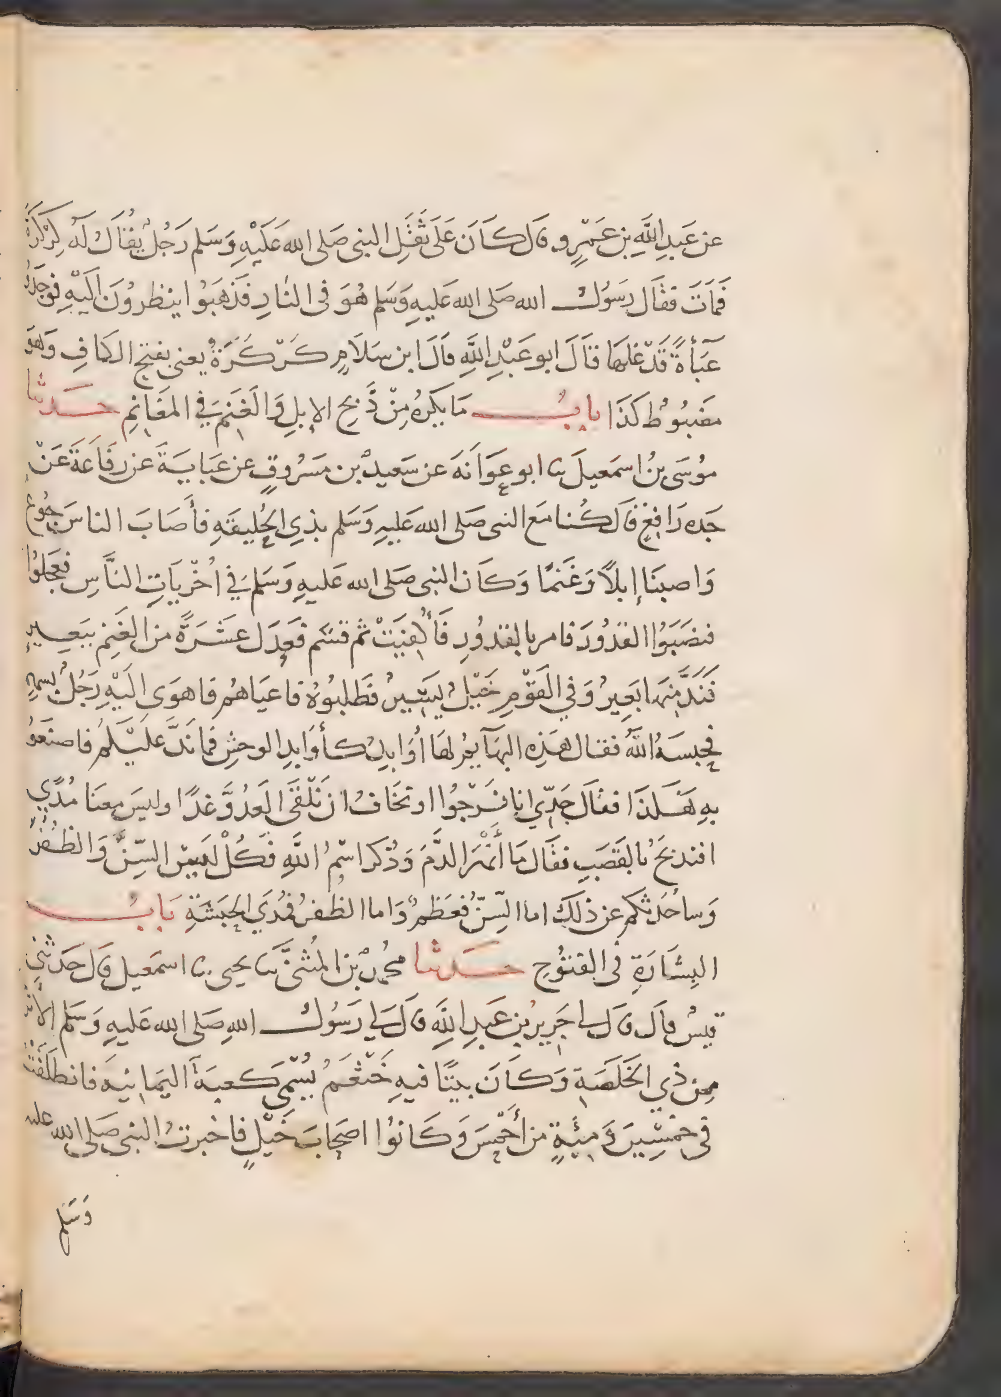 عَن عَبدِ اللَّهِ بن عَمْرٍو قَال كَانَ عَلَى ثَقَلِ النبى صَلى الله عَلَيْهِ وَسَلم رَجُلٌ يُقَال لَهُ كِرْكَرَةُ
فَمَاتَ فقَال رَسُول الله صَلى الله عَليهِ وَسَلم هُوَ فى النارِ فَذهَبُوا ينظرُونَ اِلَيْهِ فوَجَدُوا
عَبَآءَةً قَدْ غلهَا قَالَ ابو عَبْدِ اللَّهِ قَالَ ابن سَلَامٍ كَرْكَرَةُ يعنى بفتح الكاف وَهوَ
مضبُوطٌ كَذَا بابُ مَا يكرَهُ مِنْ ذَبحِ الإبلِ وَالغَنَمِ فِى المغَانِمِ حَدثنا
مُوسَى بنُ اسمَعيلَ نا ابو عَوَانَهَ عن سَعيدِ بن مَسرُوقٍ عن عَبَايَةَ عن رفَاعَةَ عَنْ
جَده رَافِعٍ قَال كُنا مَع النبى صَلى الله عَليهِ وَسَلم بذِى الحُليفَهِ فأَصَابَ الناسَ جُوعٌ
وَاصبنَا إبلاً وَغَنَمًا وَكَانَ النبى صَلى الله عَليهِ وَسَلمَ فِى اُخْرَيَاتِ النَّاسِ فعَجلوُا
فنصَبَوُا القدُورَ فامر بالقدُورِ فَأُكْفِئَتْ ثم قسَم فَعَدَل عَشَرَةً من الغَنِم ببَعِيرٍ
فَنَدَّ مِنهَا بَعِيرُ وَفِى القَوْمِ خَيْلٌ يَسِيرُ فَطَلبُوهُ فَاعياهُم فاهوَى الَيْهِ رَجُلٌ بسهمٍ
فحبسَهُ اللَّهُ فقال هَذِه البهَآيم لهَا أوَابِدُ كأوَابدِ الوحشِ فمَا نَدَّ عَليْكم فاصنَعوُا
بهِ هَكَذَا فقَالَ جَدّى اِنا نَرْجُوا او نخَافُ انْ نَلْقَى العَدُوَّ غَدًا وليسَ معنَا مُدًى
افنذبَحُ بالقَصَبِ فقَال مَا أَنْهَرَ الدَّمَ وَذُكر اسْمُ اللَّهِ فَكُلْ لَيسَ السِّنَّ وَالظُفُرَ
وَساُحَدثكم عن ذلكَ اما السِّنُّ فعَظمٌ وَاما الظفرُ فمُدَى الحَبَشَةِ بَابُ
البِشَارَةِ فى الفتوُحِ حَدثنا محمدُ بن المُثنَّى نا يحيى نا اسمَعيل قَال حَدثنى
قيسٌ قَالَ قَالَ لى جَرِيرُ بن عَبدِ اللَّهِ قَال لى رَسُول اللهِ صَلى الله عَليهِ وَسَلم الا
مِن ذِي الخَلَصَةِ وَكَانَ بيتًا فيهِ خَثْعَمُ يُسَّمى كَعبَةَ اليَمَانِيَه فانطَلَقْتُ
فى خمسِينَ وَمِئَةٍ مِن أَحْمسَ وَكَانوُا اصحَابَ خَيْلٍ فاخبرتُ النبى صَلى الله عليه
وَسَلم